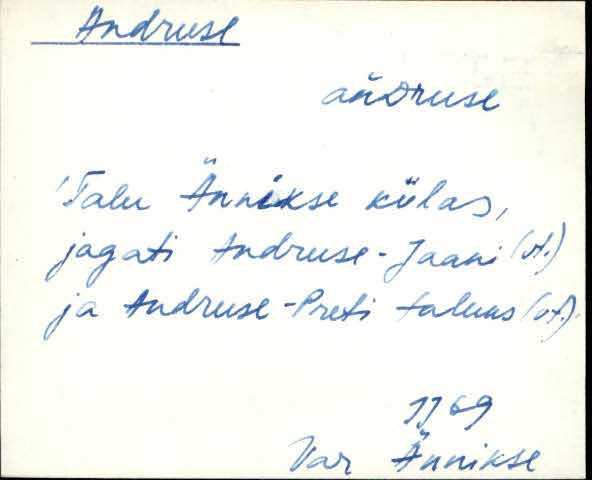 Andruse
ańDruse
'Talu Ännikse külas,
jagati Andruse-Jaani (vt.)
ja Andruse-Preti taluks (vt.).
JJ 69
Var Ännikse